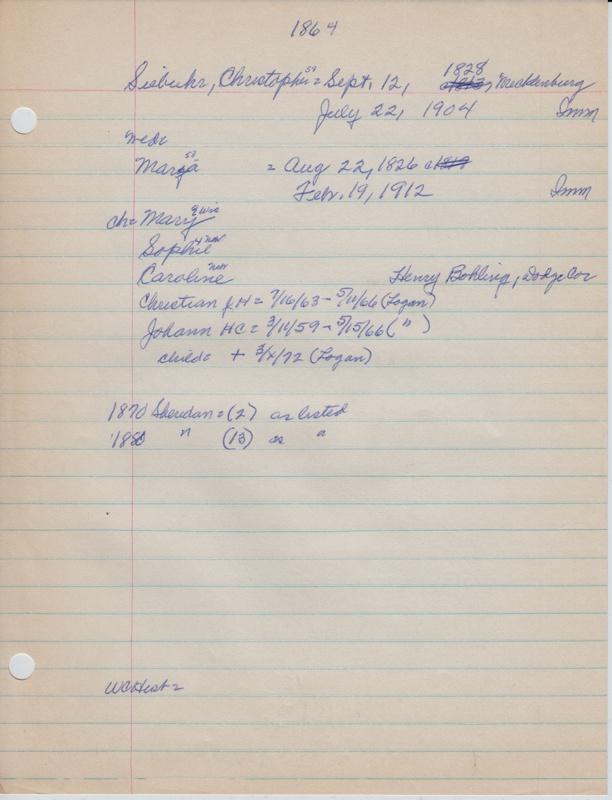 1864
Siebuhr, Christopher 59 = Sept. 12, 1828, Mecklenburg
July 22, 1904 Imm
wed:
Maria 53 = Aug 22, 1826
Febr. 19, 1912 Imm
ch= Mary 9 Wis
Sophie 4 Neb
Caroline Neb Henry Bohling, Dodge Co
Christian J.H = 7/16/63 - 5/11/66 (Logan)
Johann HC = 3/11/59 - 5/15/66 ( " )
child: + 3/x/72 (Logan)
1870 Sheridan = (2) as listed
1880 " (13) as "
WCHist =